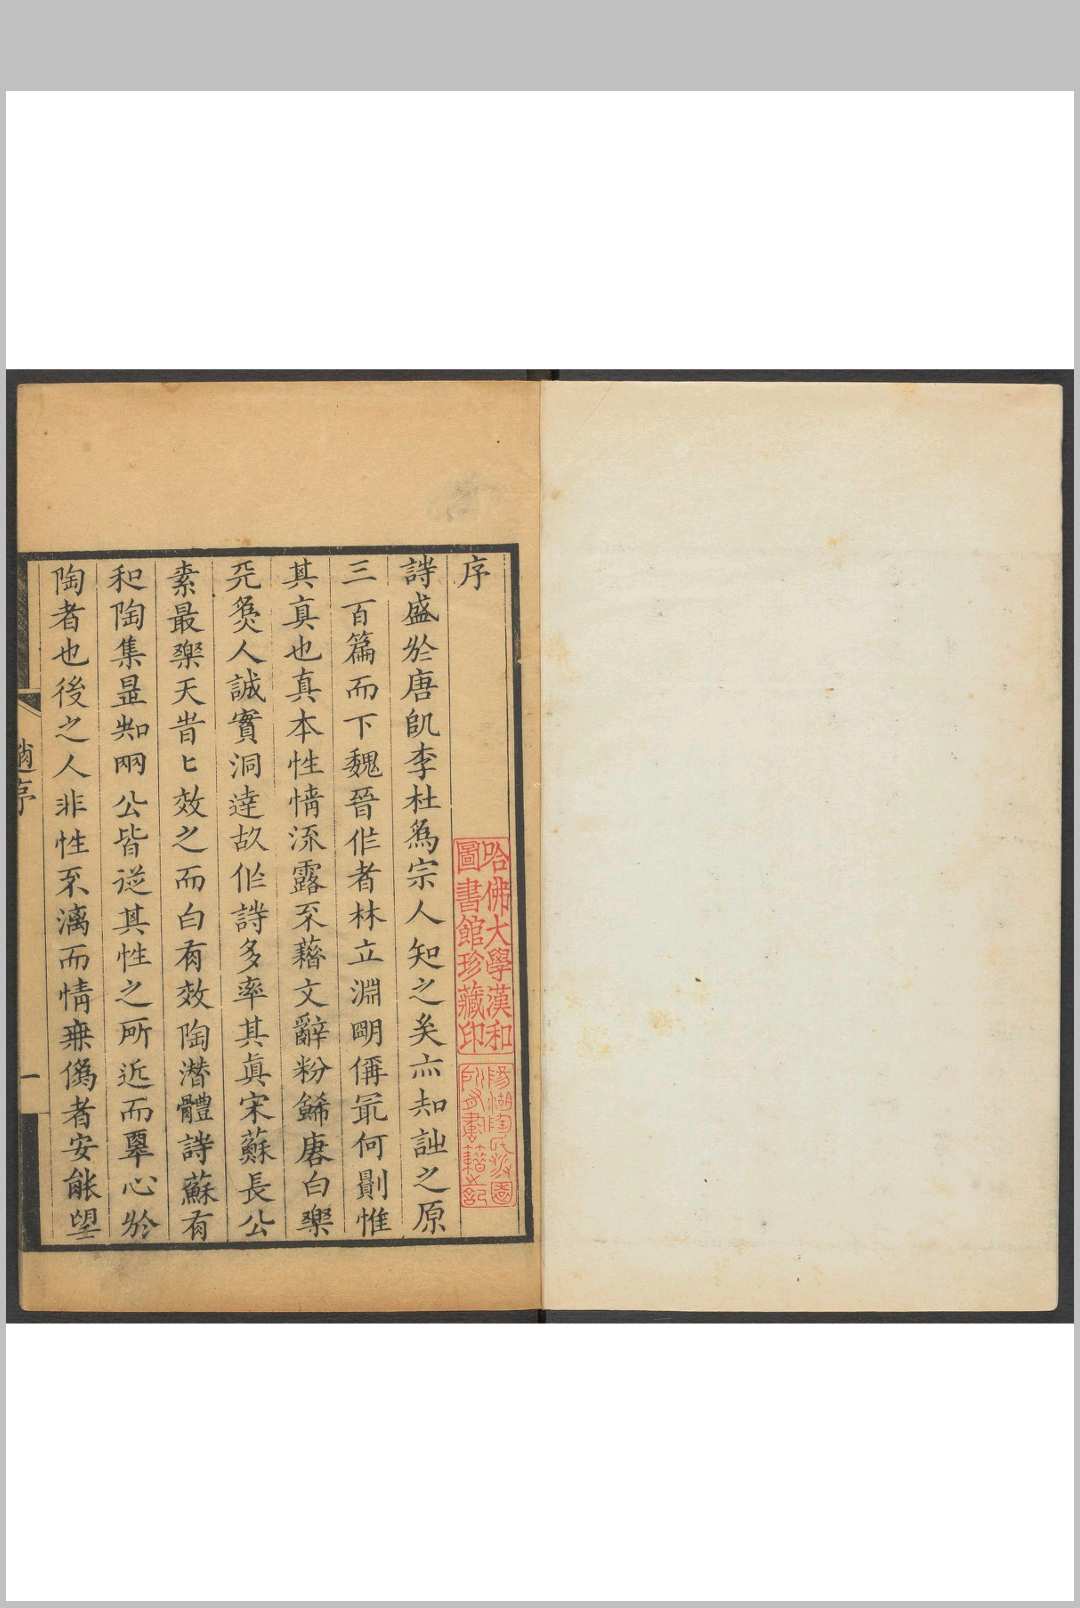 序
詩盛於唐凯李杜爲宗人知之矣亦知詘之原
三百篇而下魏晉作者林立淵明偁冣何㔡惟
其真也真本性情流露不藉文辭粉餙唐白樂
天爲人誠實洞達故作詩多率其真宋蘇長公
素最樂天昔匕效之而白有效陶潜體詩蘇有
和陶集是知兩公皆從其性之所近而𦤎心於
陶者也後之人非性不漓而情無僞者安能望
趙序
一
哈佛大學漢和
圖書館珍藏印
陽湖陶氏涉園
所有書籍之記